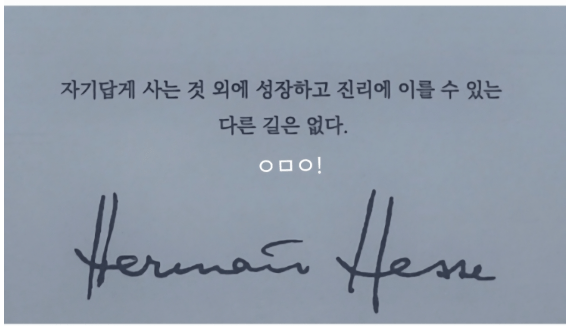 자기답게 사는 것 외에 성장하고 진리에 이를 수 있는
다른 길은 없다.
ㅇㅁㅇ!
Hermann Hesse